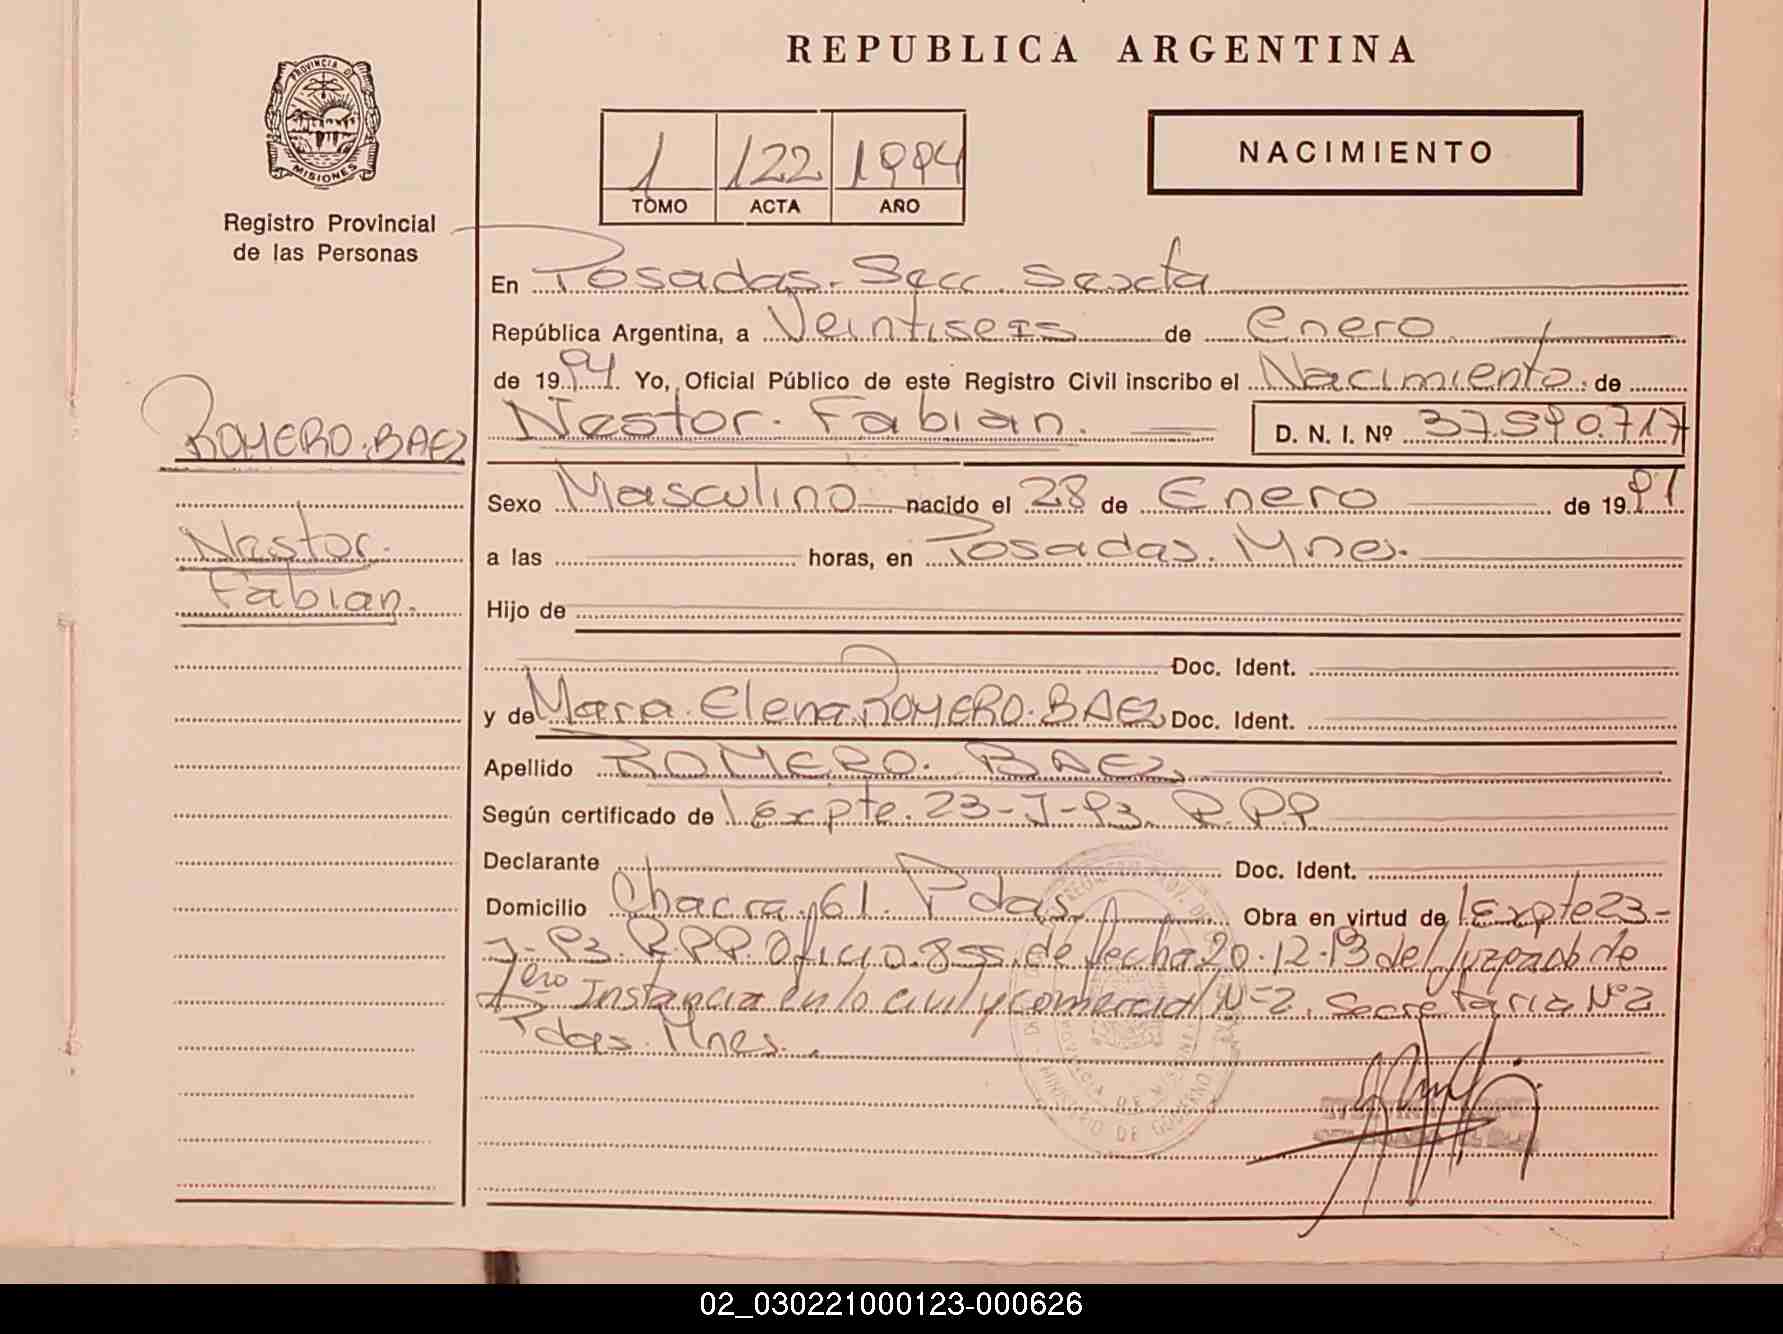 REPUBLICA ARGENTINA
PROVINCIA DE
MISIONES
Registro Provincial
de las Personas
1 122 1994
TOMO ACTA AÑO
NACIMIENTO
En Posadas. Secc. Sexta
República Argentina, a Veintiseis de Enero
de 1994 Yo, Oficial Público de este Registro Civil inscribo el Nacimiento de
ROMERO. BAEZ
Nestor. Fabian. D. N. I. Nº 37.590.717
Sexo Masculino nacido el 28 de Enero de 1991
Nestor.
Fabian.
a las horas, en Posadas. Mnes.
Hijo de
Doc. Ident.
y de Mara. Elena ROMERO. BAEZ Doc. Ident.
Apellido ROMERO. BAEZ
Según certificado de Expte. 23-J-93. R.P.P
Declarante Doc. Ident.
Domicilio Chacra. 61. Pdas. Obra en virtud de Expte 23-
J-93. R.PP. Oficio. 855. de fecha 20.12.93 del Juzgado de
1ero Instancia en lo civil y comercial Nº2. Secretaria Nº2
Pdas. Mnes.
MINISTERIO DE GOBIERNO
02_030221000123-000626